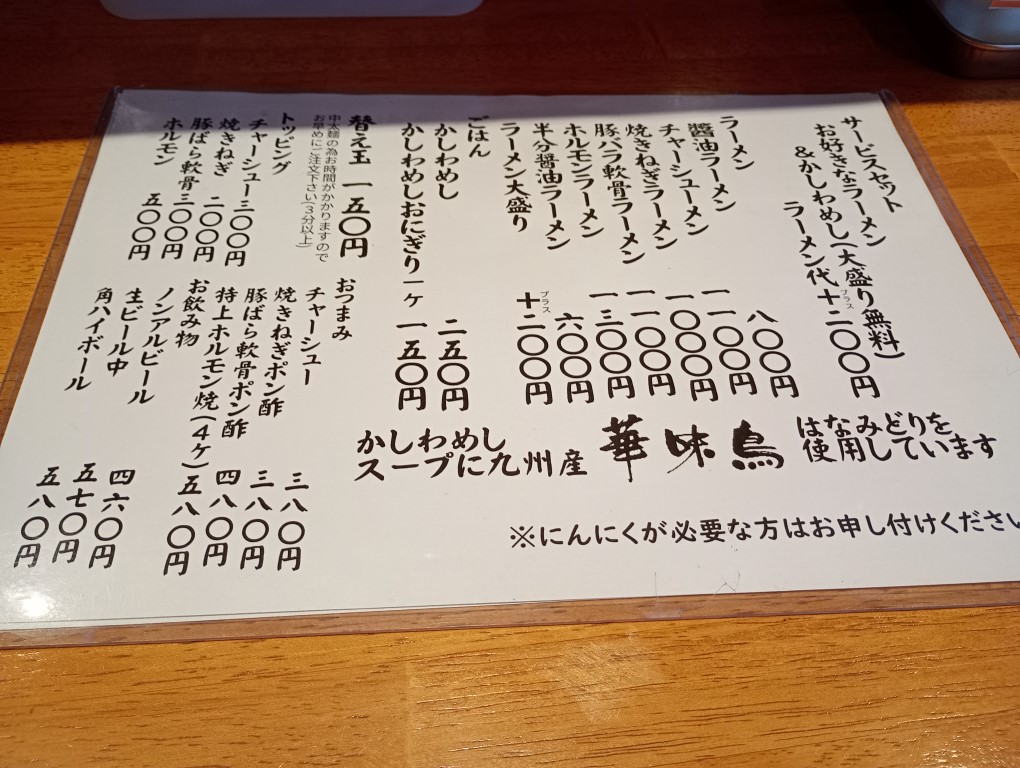 サービスセット
お好きなラーメン
&かしわめし(大盛り無料)
ラーメン代+プラス二〇〇円
ラーメン
醬油ラーメン 八〇〇円
チャーシューメン 一一〇〇円
焼きねぎラーメン 一〇〇〇円
豚バラ軟骨ラーメン 一一〇〇円
ホルモンラーメン 一三〇〇円
半分醤油ラーメン 六〇〇円
ラーメン大盛り +プラス二〇〇円
ごはん
かしわめし 二五〇円
かしわめしおにぎり一ケ 一五〇円
替え玉 一五〇円
中太麺の為お時間がかかりますので
お早めにご注文下さい(3分以上)
トッピング
チャーシュー 三〇〇円
焼きねぎ 二〇〇円
豚ばら軟骨 三〇〇円
ホルモン 五〇〇円
おつまみ
チャーシュー 三八〇円
焼きねぎポン酢 三八〇円
豚ばら軟骨ポン酢 四八〇円
特上ホルモン焼(4ケ) 五八〇円
お飲み物
ノンアルビール 四六〇円
生ビール中 五七〇円
角ハイボール 五八〇円
かしわめし
スープに九州産 華味鳥 はなみどりを
使用しています
※にんにくが必要な方はお申し付けください